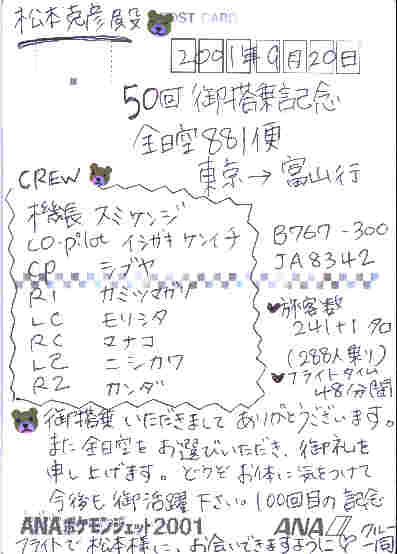 松本克彦殿
POST CARD
2001年9月20日
50回 御搭乗記念
全日空881便
東京→富山行
CREW
機長 スミケンジ
CO-pilot イシガキ ケンイチ
CP シブヤ
R1 カミツマガリ
LC モリシタ
RC マナコ
L2 ニシカワ
R2 カンダ
B767-300
JA8342
旅客数
241+1名
(288人乗り)
フライトタイム
48分間
御搭乗いただきまして ありがとうございます。
また全日空をお選びいただき、御礼を
申し上げます。どうぞ お体に気をつけて
今後も御活躍下さい。100回目の記念
フライトで松本様に、お会いできますように
クルー一同
ANAポケモンジェット2001
ANA